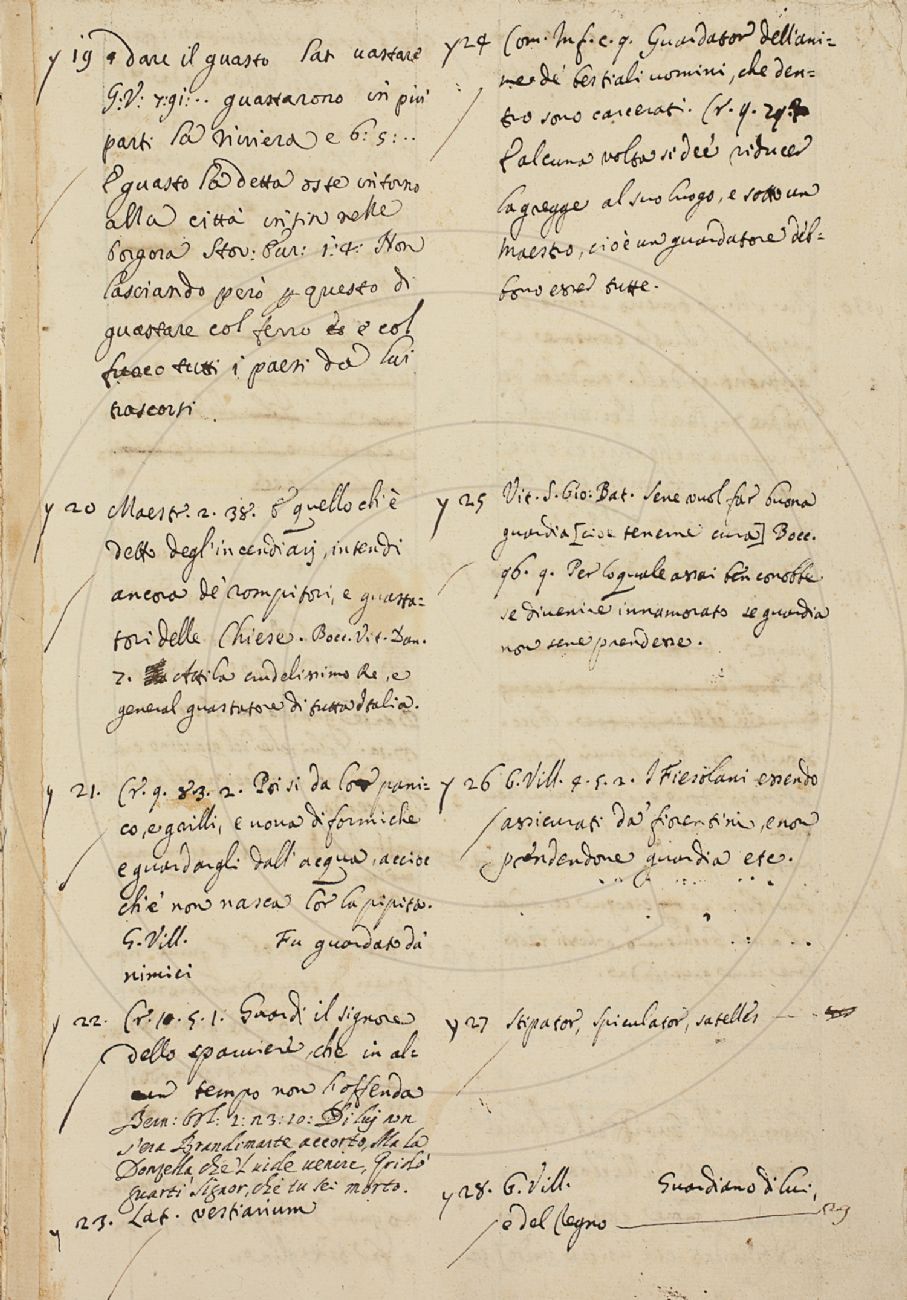 y 19 Dare il guasto Lat vastare
G: V: 7: 91: .. guastarono in più
parti la riviera e 6: 5: ..
E guasto la detta oste intorno
alla città infin nelle
borgora Stor: Eur: 1: 4: Non
lasciando però p questo di
guastare col ferro e col
fuoco tutti i paesi da lui
trascorsi
y 20 Maestr. 2. 38. E quello ch'è
detto degl'incendiarj, intendi
ancora de' rompitori, e guasta=
tori delle Chiese. Bocc. Vit. Dan.
7. Attila crudelissimo Re, e
general guastatore di tutta Italia.
y 21. Cr. 9. 83. 2. Poi si da lor pani=
co, e grilli, e uova di formiche
e guardargli dall'acqua, accioc
ch'e' non nasca lor la pipita.
G. Vill. Fu guardato da'
nimici
y 22. Cr. 10. 5. 1. Guardi il signore
dello sparviere, che in al=
cun tempo non l'offenda
Bern: Orl: 1: 23: 10: Di lui non
s'era Brandimarte accorto, Ma la
Donzella che'l vide venire, Gridò
guarti signor, che tu sei morto.
y 23. Lat. vestiarium
y 24 Com. Inf. c. 9. Guardator dell'ani=
me de' bestiali uomini, che den=
tro sono carcerati. Cr. 9. 79.
E alcuna volta si dee riducer
la gregge al suo luogo, e sotto un
maestro, cioè un guardatore deb=
bono esser tutte.
y 25 Vit. S. Gio: Bat. Sene vuol far buona
guardia [cioè tenerne cura] Bocc.
96. 9. Per lo quale assai ben conobbe
se divenire innamorato se guardia
non sene prendesse.
y 26 G. Vill. 4. 5. 2. I Fiesolani essendo
assicurati da' fiorentini, e non
prendendone guardia etc.
y 27 Stipator, spiculator, satelles
y 28. G. Vill. Guardiano di lui,
e del Regno 29